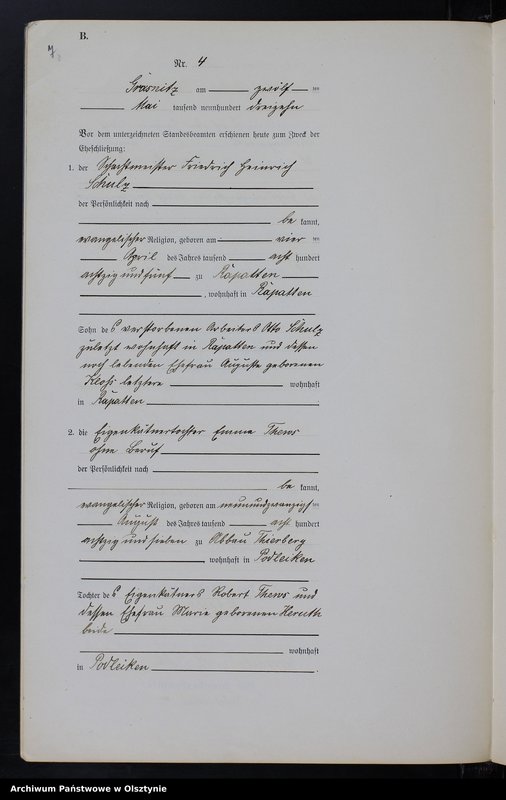 B.
Nr. 4
Grasnitz am zwölf ten
Mai tausend neunhundert dreizehn
Vor dem unterzeichneten Standesbeamten erschienen heute zum Zweck der
Eheschließung:
1. der Schachtmeister Friedrich Heinrich
Schulz
der Persönlichkeit nach
be kannt,
evangelischer Religion, geboren am vier ten
April des Jahres tausend acht hundert
achtzig und fünf zu Rapatten
, wohnhaft in Rapatten
Sohn des verstorbenen Arbeiters Otto Schulz
zuletzt wohnhaft in Rapatten und dessen
noch lebenden Ehefrau Auguste geborenen
letztere wohnhaft
in Rapatten
2. die Eigenkätnertochter Emma Thews
ohne Beruf
der Persönlichkeit nach
be kannt,
evangelischer Religion, geboren am neunundzwanzigs ten
August des Jahres tausend acht hundert
achtzig und sieben zu Abbau Thierberg
wohnhaft in Podleiken
Tochter des Eigenkätners Robert Thews und
dessen Ehefrau Marie geborenen
beide
wohnhaft
in Podleiken
Archiwum Państwowe w Olsztynie